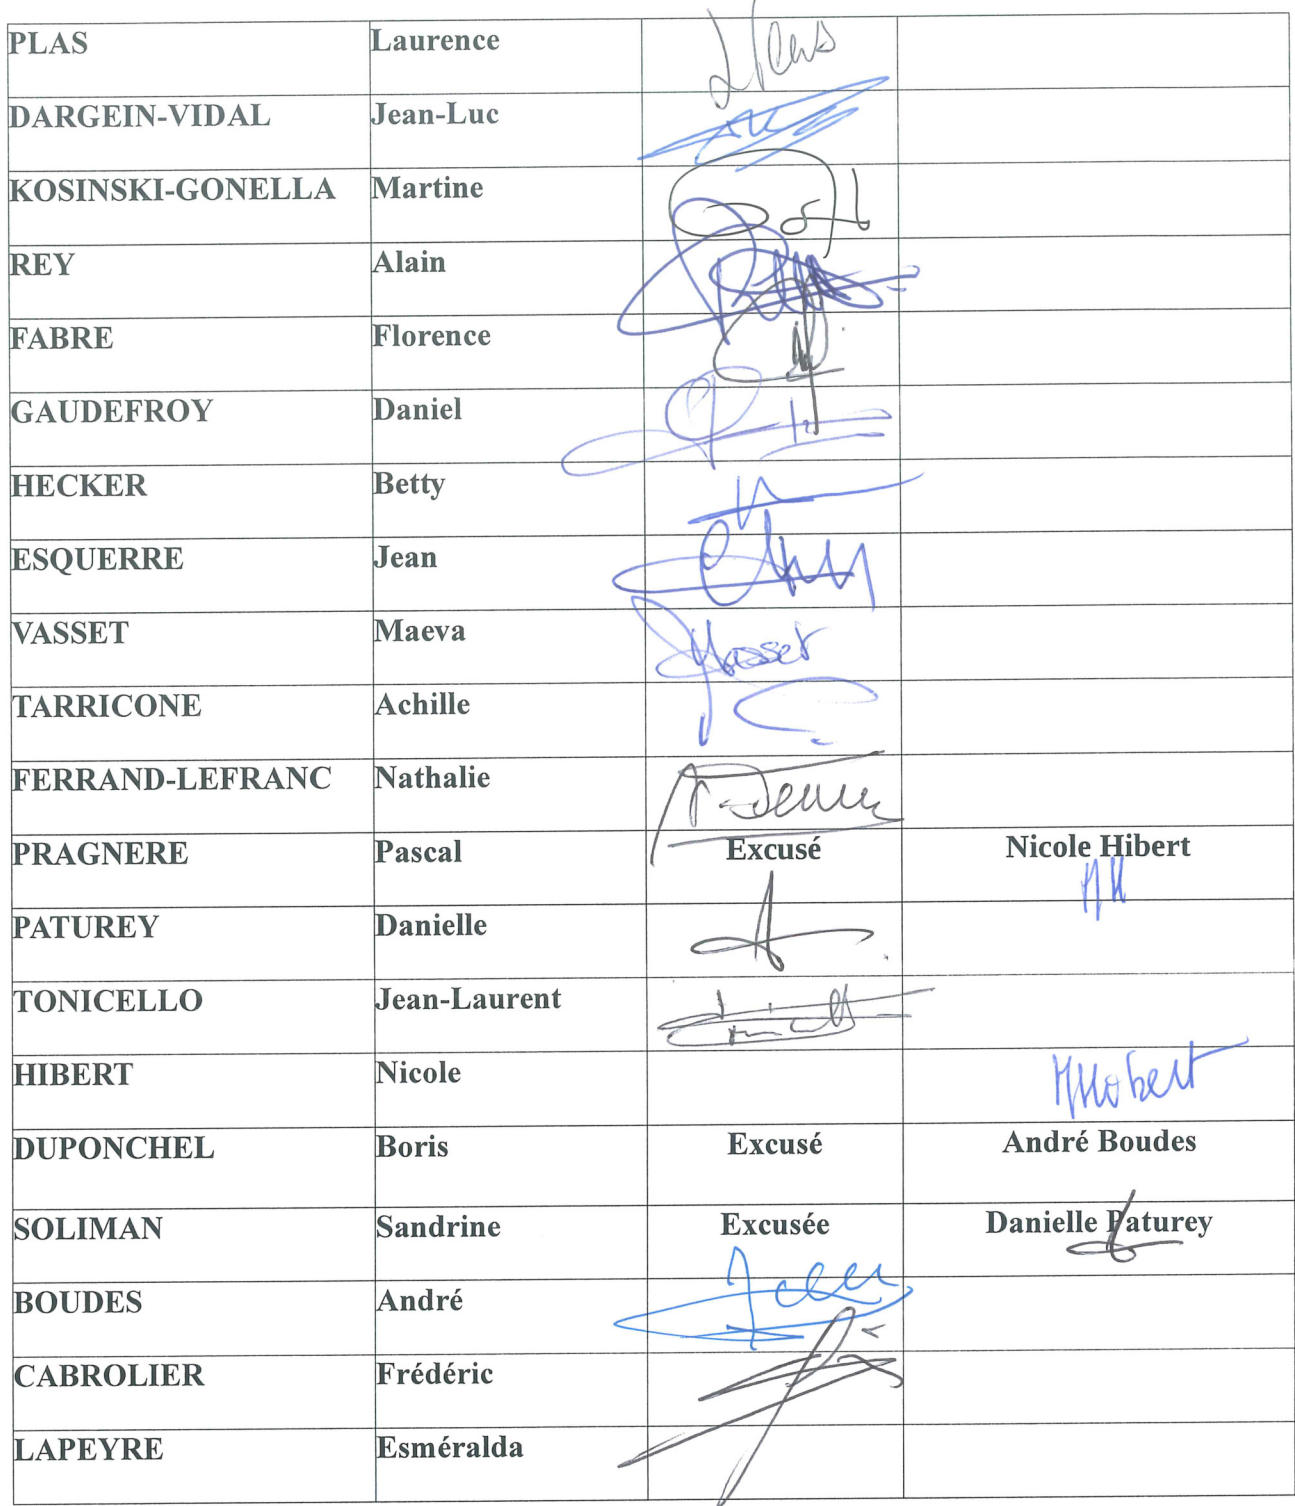 PLAS Laurence
DARGEIN-VIDAL Jean-Luc
KOSINSKI-GONELLA Martine
REY Alain
FABRE Florence
GAUDEFROY Daniel
HECKER Betty
ESQUERRE Jean
VASSET Maeva
Vasset
TARRICONE Achille
FERRAND-LEFRANC Nathalie
PRAGNERE Pascal Excusé Nicole Hibert
NH
PATUREY Danielle
TONICELLO Jean-Laurent
HIBERT Nicole
DUPONCHEL Boris Excusé André Boudes
SOLIMAN Sandrine Excusée Danielle Paturey
BOUDES André
CABROLIER Frédéric
LAPEYRE Esméralda